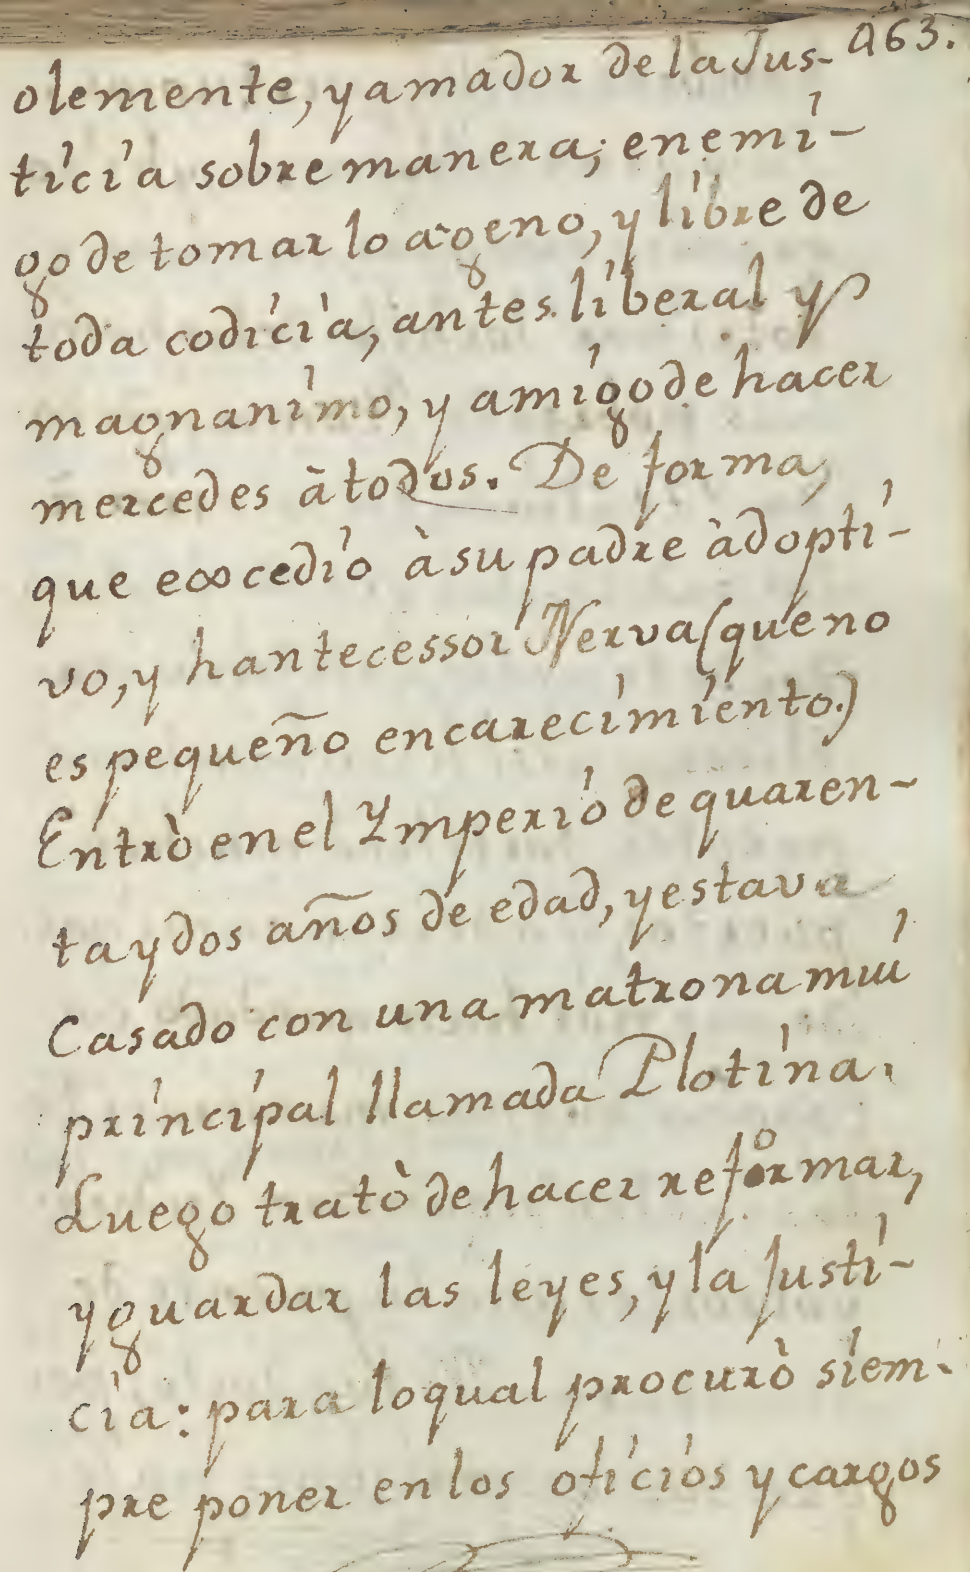 clemente, y amador de la Jus- 463.
ticia sobre manera; enemi-
go de tomar lo ageno, y libre de
toda codicia, antes liberal y
magnanimo, y amigo de hacer
mercedes à todos. De forma,
que excedio à su padre àdopti-
vo, y hantecessor Nerva (que no
es pequeño encarecimiento.)
Entrò en el Ymperio de quaren-
ta y dos años de edad, y estava
Casado con una matrona mui
principal llamada Plotina.
Luego tratò de hacer reformar,
y guardar las leyes, y la Justi-
cia: para lo qual procurò siem-
pre poner en los oficios y cargos